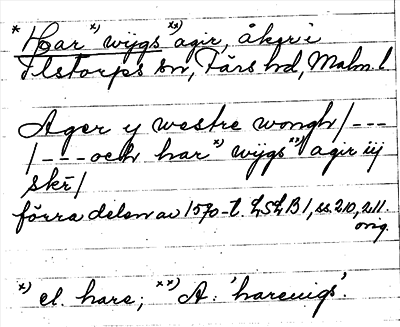 * Har x) wijgs xx) agir, åker i
Ilstorps sn, Färs hd, Malm. l
Ager y westre wongh /---
/--- och har x) wijgs xx) agir iij
skr̄/
förra delen av 1570-t. LSLB 1, ss. 210, 211.
orig.
x) el. hara; xx) A. 'harewigs'.